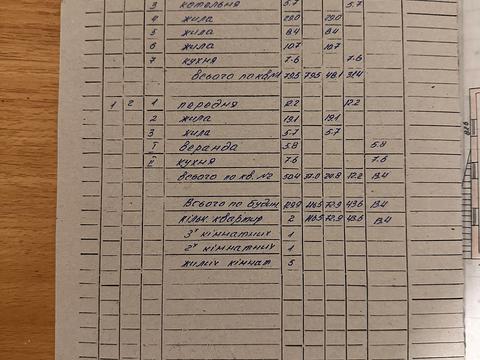 3 котельня 5.7 5.7
4 жила 29.0 29.0
5 жила 8.4 8.4
6 жила 10.7 10.7
7 кухня 7.6 7.6
всього по кв. 79.5 79.5 48.1 31.4
1 2 1 передня 12.2 12.2
2 жила 19.1 19.1
3 жила 5.7 5.7
I веранда 5.8 5.8
II кухня 7.6 7.6
всього по кв. №2 50.4 37.0 24.8 12.2 13.4
Всього по будин 129.9 116.5 72.9 43.6 13.4
кільк. квартир 2 116.5 72.9 43.6 13.4
3х кімнатних 1
2х кімнатних 1
жилих кімнат 5